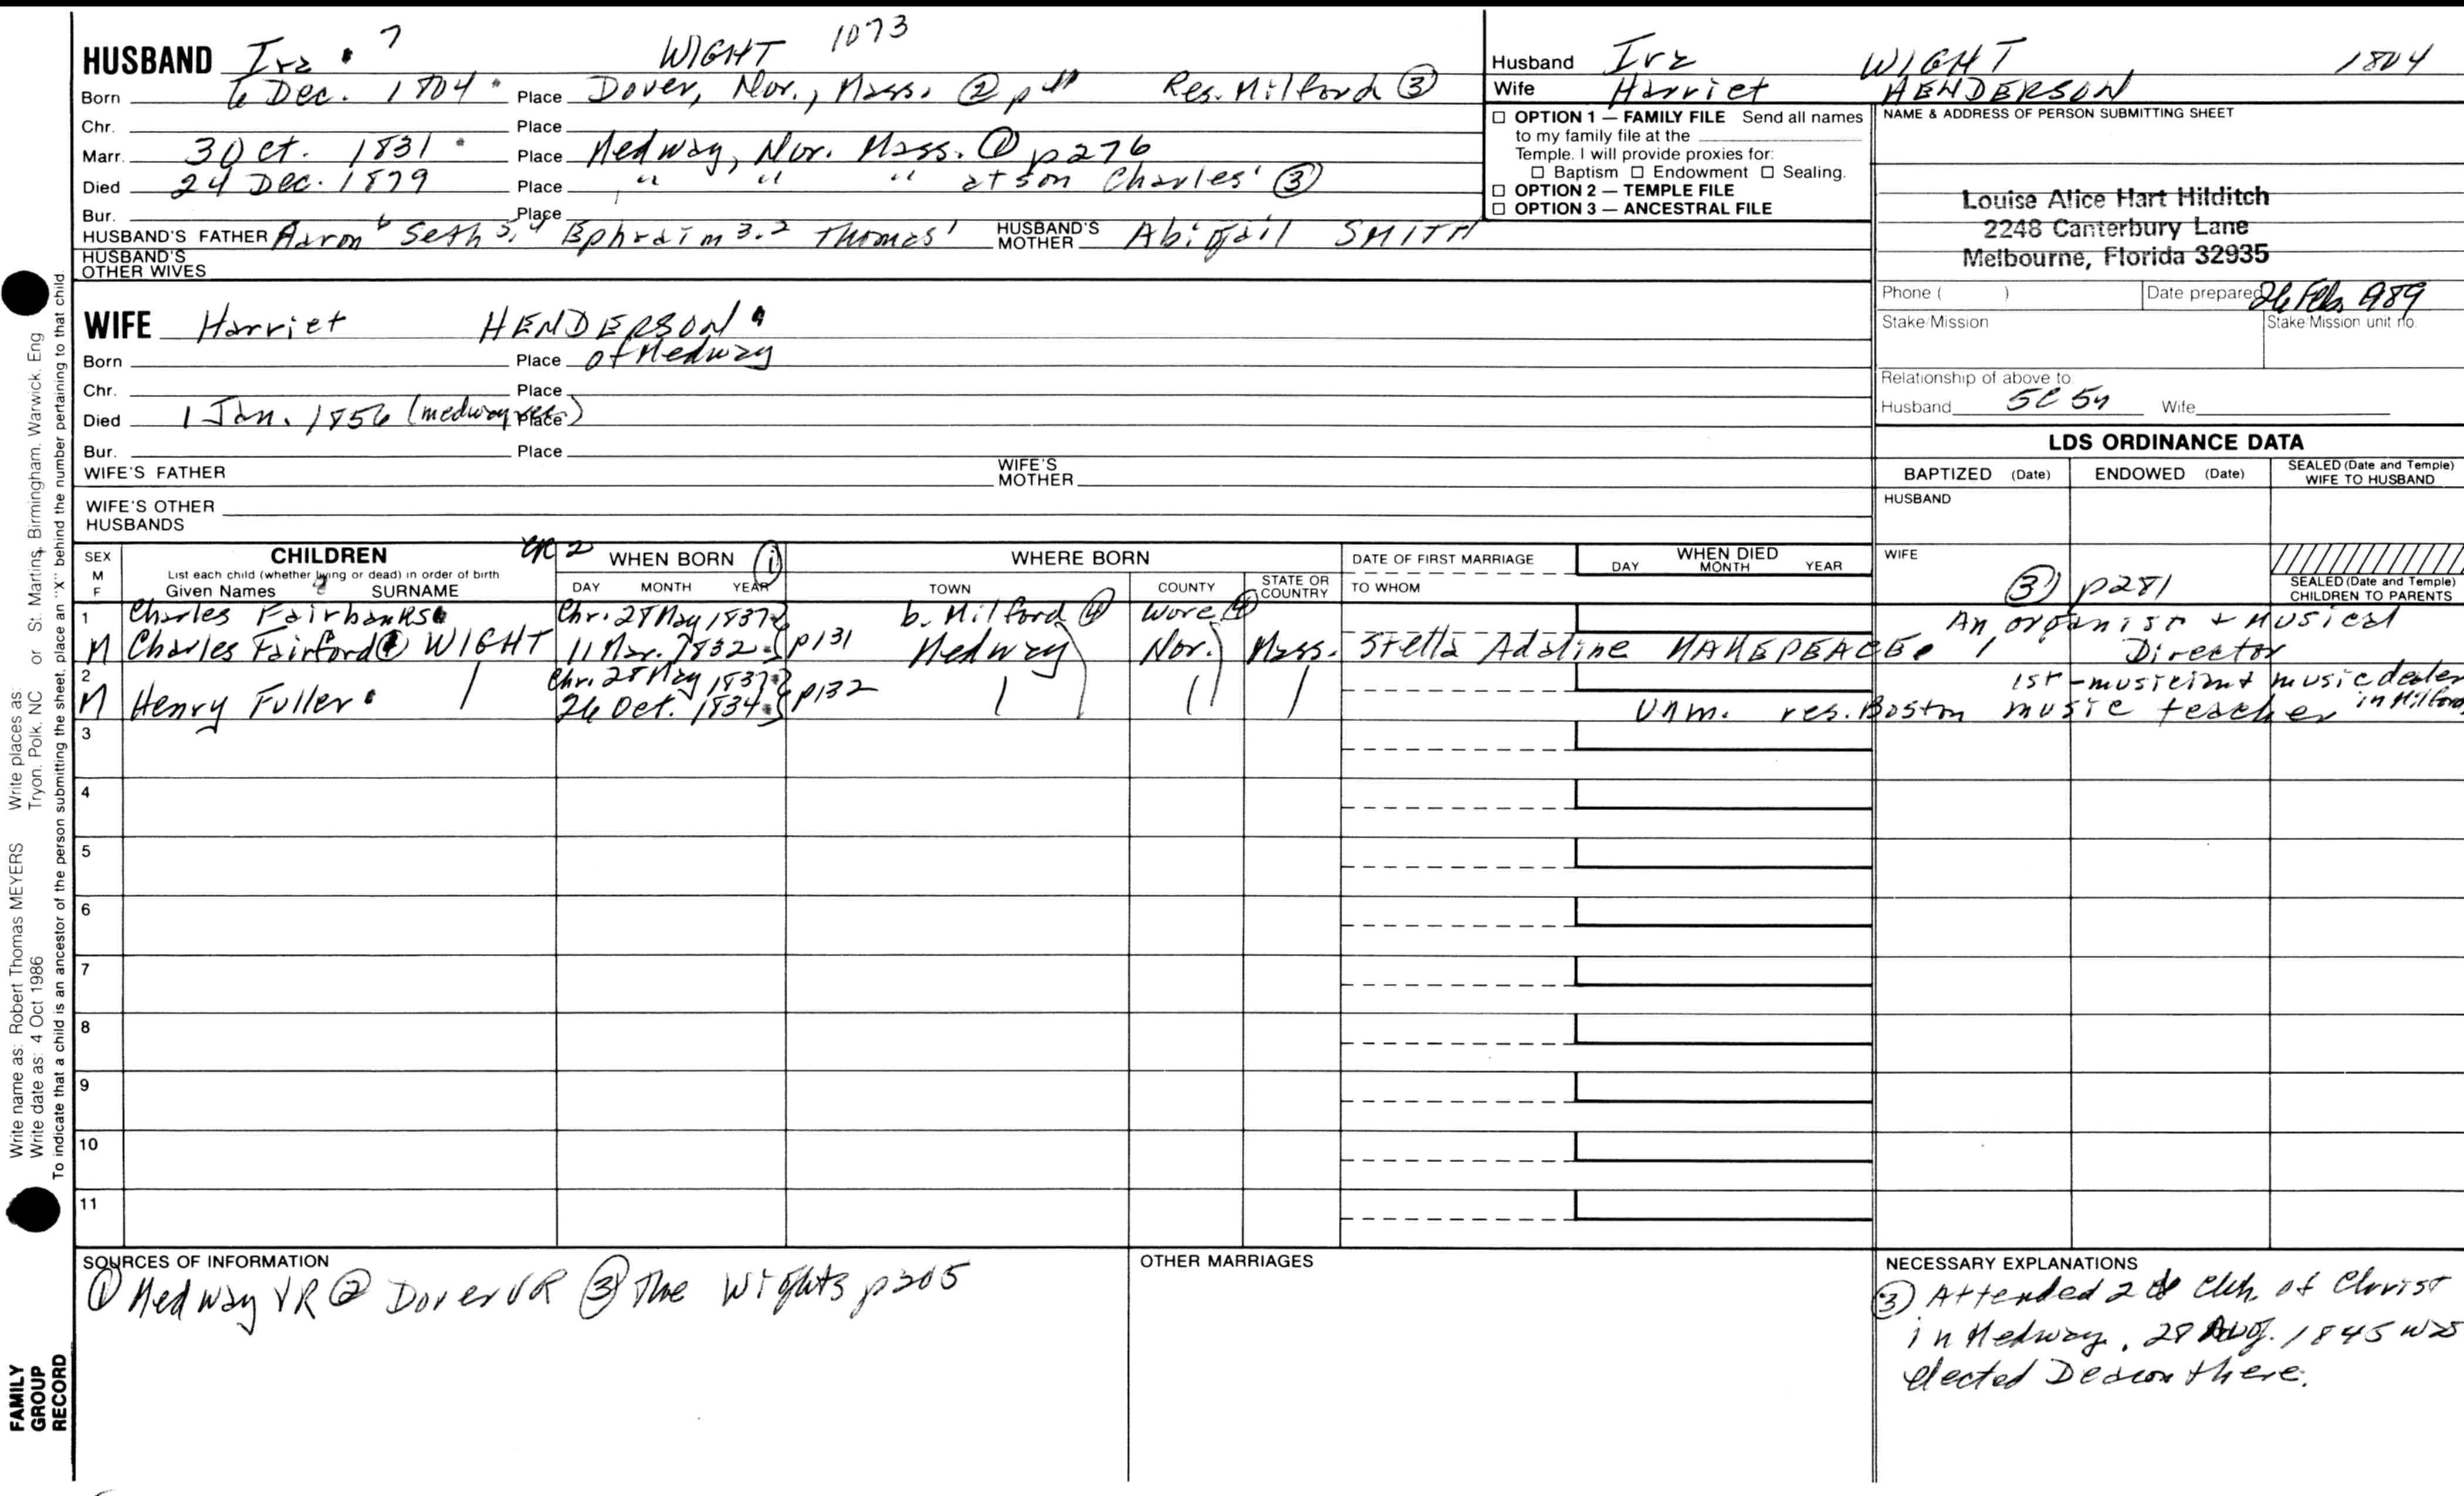 HUSBAND Ira 7 WIGHT 1073
Born 6 Dec. 1804 Place Dover, Nor., Mass. ② p Res. Milford ③
Chr. Place
Marr. 3 Oct. 1831 Place Medway, Nor. Mass. ① p276
Died 24 Dec. 1879 Place " " " at son Charles' ③
Bur. Place
HUSBAND'S FATHER Aaron 6 Seth 5,4 Ephraim 3.2 Thomas 1 HUSBAND'S MOTHER Abigail SMITH
HUSBAND'S OTHER WIVES
WIFE Harriet HENDERSON
Born Place of Medway
Chr. Place
Died 1 Jan. 1856 (medway Place)
Bur. Place
WIFE'S FATHER WIFE'S MOTHER
WIFE'S OTHER HUSBANDS
Husband Ira WIGHT 1804
Wife Harriet HENDERSON
☐ OPTION 1 — FAMILY FILE Send all names
to my family file at the
Temple. I will provide proxies for:
☐ Baptism ☐ Endowment ☐ Sealing.
☐ OPTION 2 — TEMPLE FILE
☐ OPTION 3 — ANCESTRAL FILE
NAME & ADDRESS OF PERSON SUBMITTING SHEET
Louise Alice Hart Hilditch
2248 Canterbury Lane
Melbourne, Florida 32935
Phone ( ) Date prepared 26 Feb 989
Stake/Mission Stake/Mission unit no.
Relationship of above to
Husband 5C 5n Wife
LDS ORDINANCE DATA
BAPTIZED (Date) ENDOWED (Date) SEALED (Date and Temple) WIFE TO HUSBAND
HUSBAND
WIFE
③ p281
SEALED (Date and Temple) CHILDREN TO PARENTS
SEX M F
CHILDREN
List each child (whether living or dead) in order of birth
Given Names SURNAME
WHEN BORN ①
DAY MONTH YEAR
WHERE BORN
TOWN COUNTY STATE OR COUNTRY
DATE OF FIRST MARRIAGE
TO WHOM
WHEN DIED
DAY MONTH YEAR
1 Charles Fairbanks Chr. 28 May 1837 b. Milford ④ Worc ④ An organist + Musical
M Charles Fairford WIGHT 11 Mar. 1832 p131 Medway Nor. Mass. Stella Adaline MAKEPEACE Director
2 Chr. 28 May 1837 1st - musician + music dealer
M Henry Fuller 26 Oct. 1834 p132 Unm. res. Boston music teacher in Milford
3
4
5
6
7
8
9
10
11
SOURCES OF INFORMATION
① Medway VR ② Dover VR ③ The Wights p205
OTHER MARRIAGES
NECESSARY EXPLANATIONS
③ Attended 2d Chh. of Christ
in Medway. 28 Aug. 1845 was
elected Deacon there.
Write name as: Robert Thomas MEYERS Write places as: Tryon, Polk, NC or St. Martins, Birmingham, Warwick, Eng
Write date as: 4 Oct 1986
To indicate that a child is an ancestor of the person submitting the sheet, place an "X" behind the number pertaining to that child.
FAMILY
GROUP
RECORD